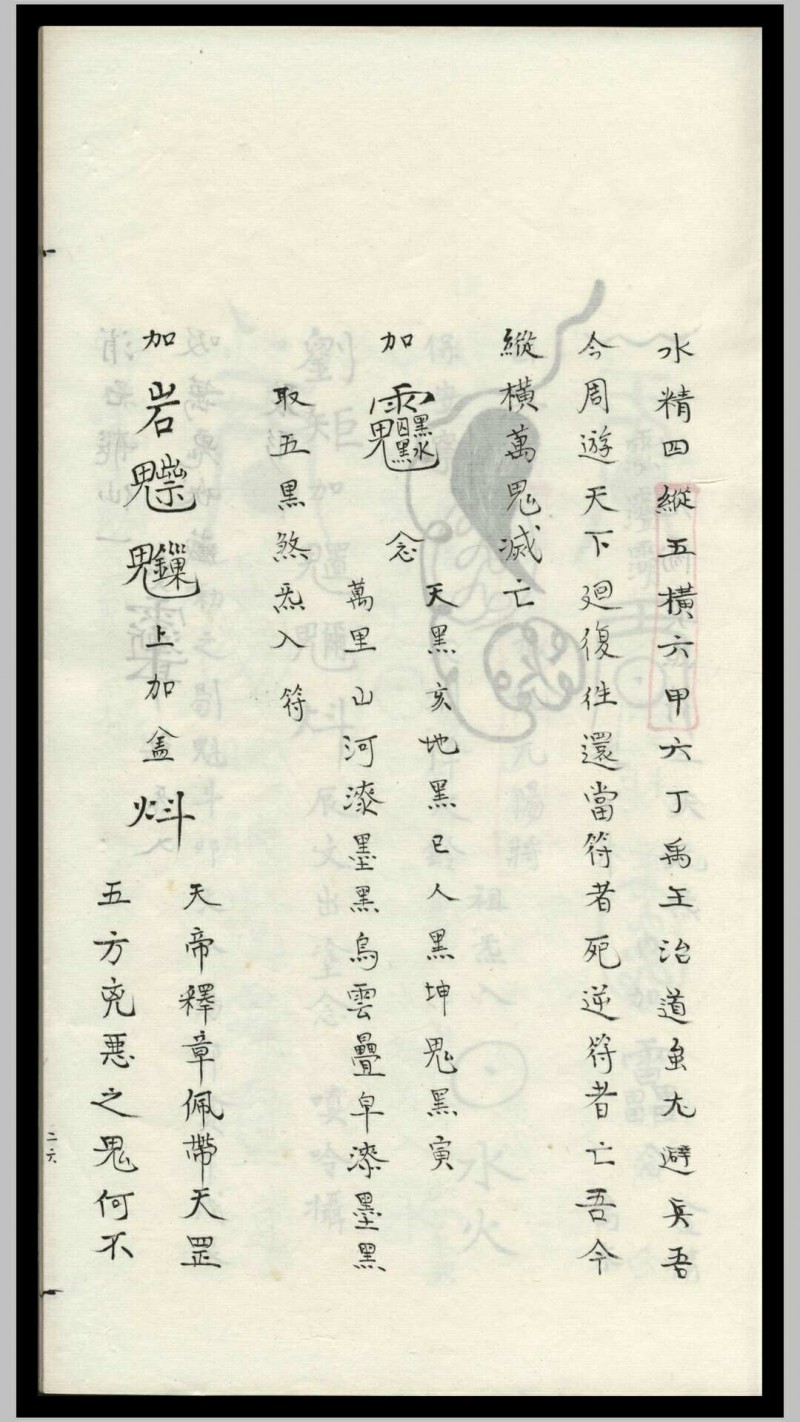 水精四縱五橫六甲六丁禹王治道蚩尤避兵吾
今周遊天下廻復往還當符者死逆符者亡吾今
縱橫萬鬼滅亡
加 念 天黑亥地黑已人黑坤鬼黑寅
萬里山河漆墨黑烏雲疊皁漆墨黑
取五黑煞炁入符
加岩 上加盒 天帝釋章佩帶天罡
五方兇惡之鬼何不
二六